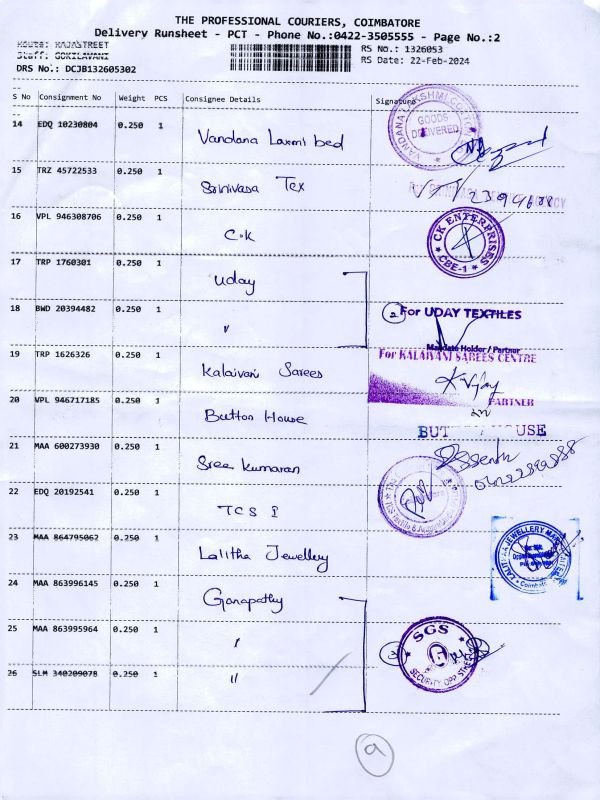 THE PROFESSIONAL COURIERS, COIMBATORE
Delivery Runsheet - PCT - Phone No.:0422-3505555 - Page No.:2
Route: RAJASTREET
Staff: GOKILAVANI
RS No.: 1326053
RS Date: 22-Feb-2024
DRS No.: DCJB132605302
S No Consignment No Weight PCS Consignee Details Signature
14 EDQ 10230804 0.250 1 Vandana Laxmi bed
GOODS DELIVERED
15 TRZ 45722533 0.250 1 Srinivasa Tex
16 VPL 946308706 0.250 1 C.K
CK ENTERPRISES
CBE-1
17 TRP 1760301 0.250 1 Uday
18 BWD 20394482 0.250 1 "
2 For UDAY TEXTILES
Mandate Holder / Partner
19 TRP 1626326 0.250 1 Kalaivani Sarees
For KALAIVANI SAREES CENTRE
K. Vijay
PARTNER
20 VPL 946717185 0.250 1 Button House
21 MAA 600273930 0.250 1 Sree Kumaran
22 EDQ 20192541 0.250 1 TCS I
23 MAA 864795062 0.250 1 Lalitha Jewellery
24 MAA 863996145 0.250 1 Ganapathy
25 MAA 863995964 0.250 1 "
26 SLM 340209078 0.250 1 "
3 SGS
SECURITY OPP STREET
9